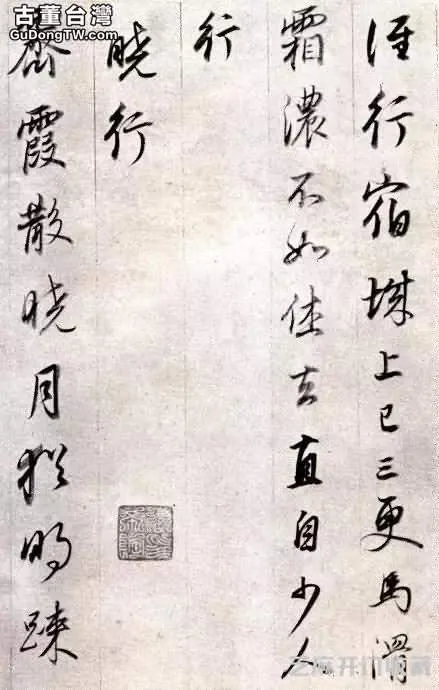 古董台灣
GuDongTW.com
誰行宿城上已三更馬滑
霜濃不如休去直自少人
行
曉行
霞散曉月猶明疎